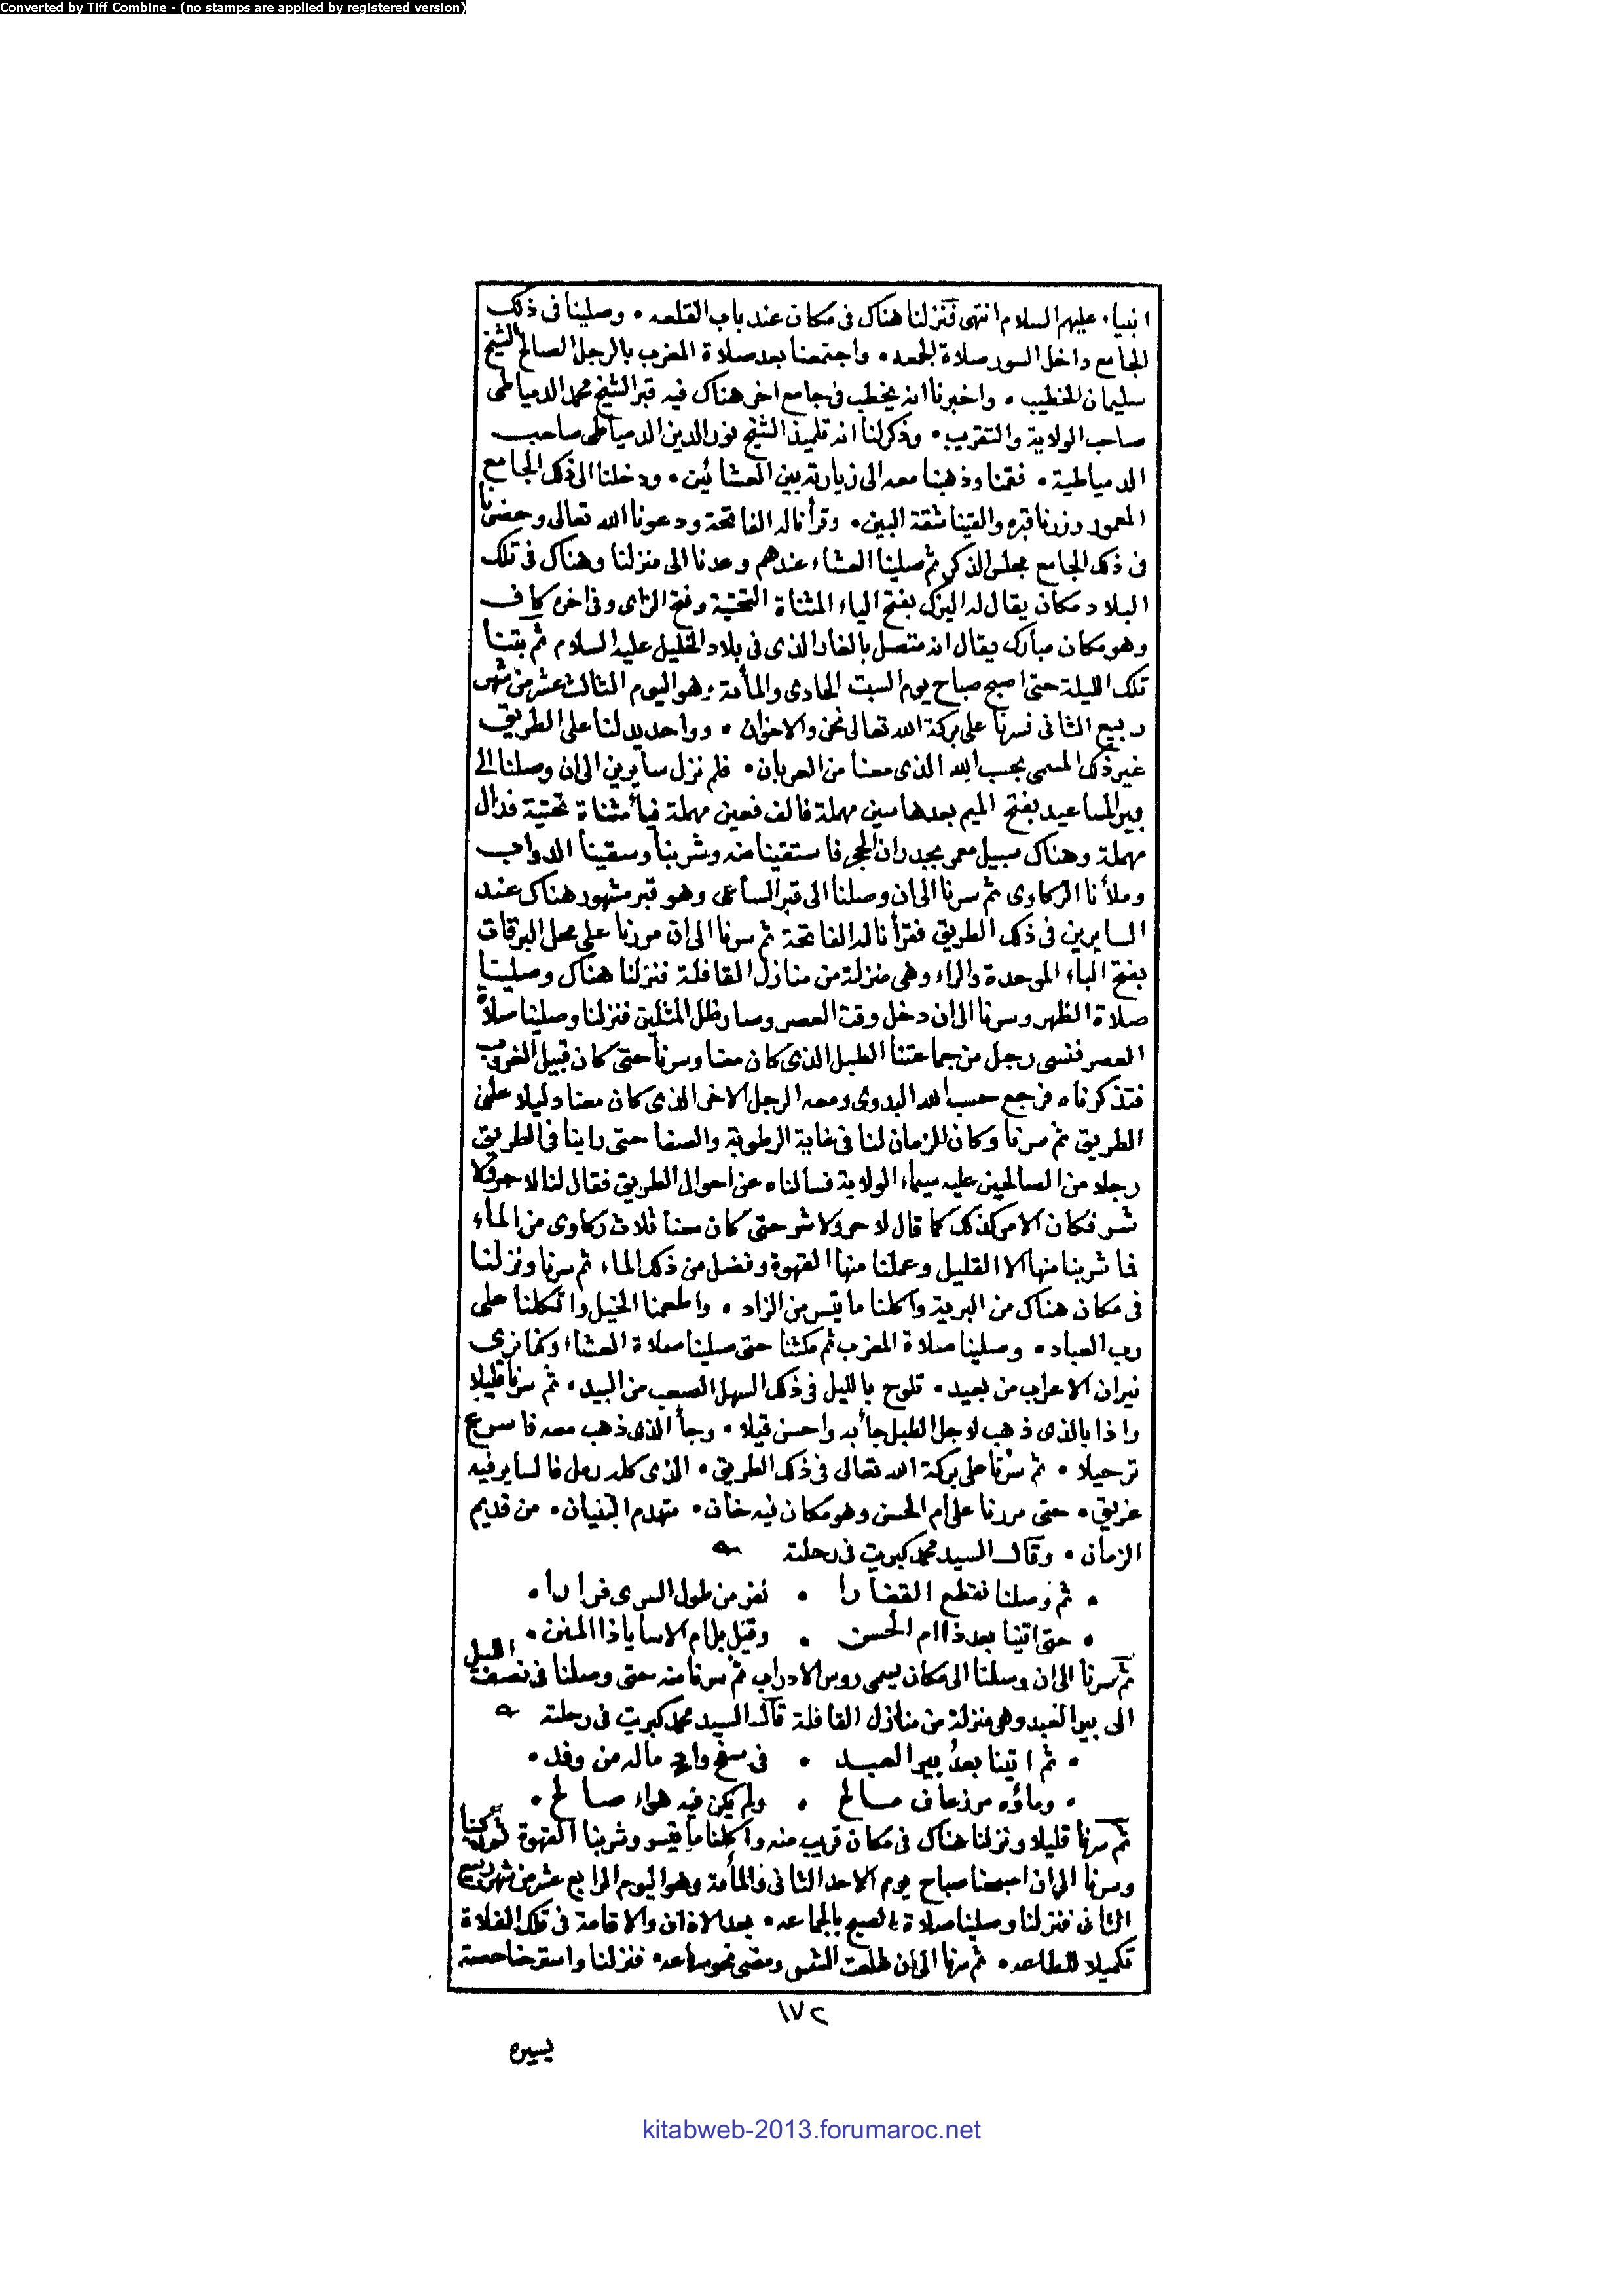 Converted by Tiff Combine - (no stamps are applied by registered version)
انبياء عليهم السلام انتهى فنزلنا هناك فى مكان عند باب القلعه • وصلينا فى ذلك
الجامع داخل السور صلاة الجمعه • واجتمعنا بعد صلاة المغرب بالرجل الصالح الشيخ
سليمان الخطيب • واخبرنا انه يخطب فى جامع اخر هناك فيه قبر الشيخ محمد الدمياطى
صاحب الولاية والتقريب • وذكر لنا انه تلميذ الشيخ نور الدين الدمياطى صاحب
الدمياطية • فقمنا وذهبنا معه الى زيارته بين العشائين • ودخلنا الى ذلك الجامع
المعمور وزرنا قبره والقينا شقة البين • وقرأنا له الفاتحة ودعونا الله تعالى وحضرنا
فى ذلك الجامع مجلس الذكر ثم صلينا العشاء عندهم وعدنا الى منزلنا وهناك فى تلك
البلاد مكان يقال له اليزك بفتح الياء المثناة التحتية وفتح الزاى وفى اخره كاف
وهو مكان مبارك يقال انه متصل بالغار الذى فى بلاد الخليل عليه السلام ثم بتنا
تلك الليلة حتى اصبح صباح يوم السبت الحادى والمأمة وهو اليوم الثالث عشر من شهر
ربيع الثانى فسرنا على بركة الله تعالى نحن والاخوان • وواحد يدلنا على الطريق
غير ذلك المسمى بحسب الله الذى معنا من العربان • فلم نزل سايرين الى ان وصلنا الى
بير المساعيد بفتح الميم بعدها سين مهملة فالف فعين مهملة فيأ مثناة تحتية فدال
مهملة وهناك سبيل معمر بجدران الحجر فاستقينا منه وشربنا وسقينا الدواب
وملأنا الركاوى ثم سرنا الى ان وصلنا الى قبر الساعى وهو قبر مشهور هناك عند
السايرين فى ذلك الطريق فقرأنا له الفاتحة ثم سرنا الى ان مررنا على محل البرقات
بفتح الباء الموحدة والراء وهى منزلة من منازل القافلة فنزلنا هناك وصلينا
صلاة الظهر وسرنا الى ان دخل وقت العصر وصار ظل المثلين فنزلنا وصلينا صلاة
العصر فنسى رجل من جماعتنا الطبل الذى كان معنا وسرنا حتى كان قبيل الغروب
فتذكرناه فرجع حسب الله البدوى ومعه الرجل الاخر الذى كان معنا دليلا على
الطريق ثم سرنا وكان الزمان لنا فى غاية الرطوبة والصفا حتى راينا فى الطريق
رجلا من الصالحين عليه سيماء الولاية فسالناه عن احوال الطريق فقال لنا لا حر ولا
شر فكان الامر كذلك كما قال لا حر ولا شر حتى كان معنا ثلاث ركاوى من الماء
فما شربنا منها الا القليل وعملنا منها القهوة وفضل من ذلك الماء ثم سرنا ونزلنا
فى مكان هناك من البرية واكلنا ما تيسر من الزاد • واطعمنا الخيل واتكلنا على
رب العباد • وصلينا صلاة المغرب ثم مكثنا حتى صلينا صلاة العشاء وكنا نرى
نيران الاعراب من بعيد • تلوح بالليل فى ذلك السهل الصعب من البيد • ثم سرنا قليلا
واذا بالذى ذهب لاجل الطبل جأ به واحسن قيلا • وجأ الذى ذهب معه فاسرع
ترحيلا • ثم سرنا على بركة الله تعالى فى ذلك الطريق • الذى كله رمل فالساير فيه
غريق • حتى مررنا على ام الحسن وهو مكان فيه خان • متهدم البنيان • من قديم
الزمان • وقال السيد محمد كبريت فى رحلته
• ثم وصلنا نقطع القفارا • نفر من طول السرى فرارا •
• حتى اتينا بعد ذا ام الحسن • وقيل بل ام الاسا ياذا المنن •
ثم سرنا الى ان وصلنا الى مكان يسمى روس الادراب ثم سرنا منه حتى وصلنا فى نصف الليل
الى بير العبد وهى منزلة من منازل القافلة قال السيد محمد كبريت فى رحلته
• ثم اتينا بعد بير العبد • فى سفح واد ماله من وفد •
• وماؤه مر زعاف مالح • ولم يكن فيه هواء صالح •
ثم سرنا قليلا ونزلنا هناك فى مكان قريب منه واكلنا ما تيسر وشربنا القهوة ثم ركبنا
وسرنا الى ان اصبحنا صباح يوم الاحد الثانى والمأمة وهو اليوم الرابع عشر من شهر ربيع
الثانى فنزلنا وصلينا صلاة الصبح بالجماعه • بعد الاذان والاقامة فى تلك الفلاة
تكميلا للطاعه • ثم سرنا الى ان طلعت الشمس ومضى نحو ساعه • فنزلنا واسترحنا حصة
١٧٢
يسيره
kitabweb-2013.forumaroc.net